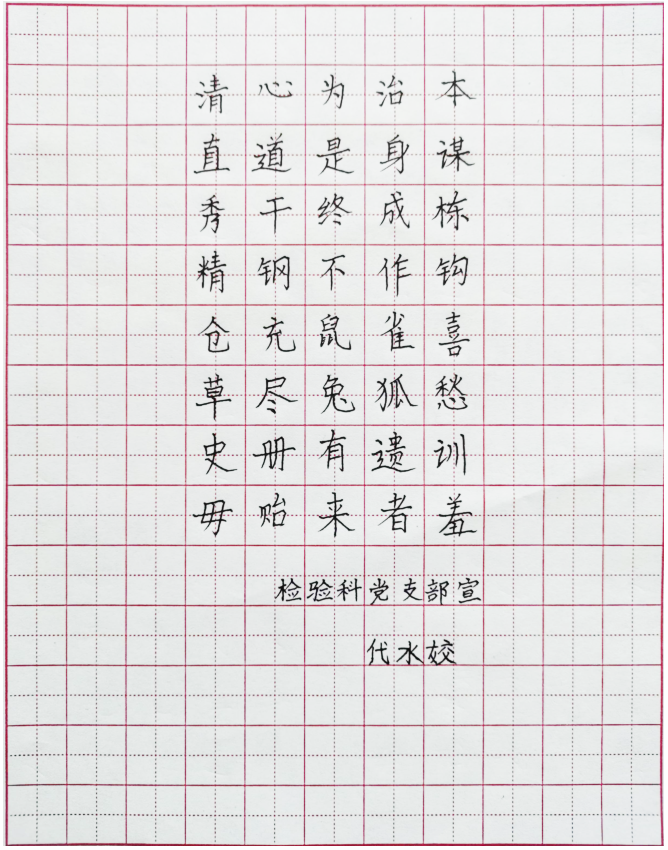 清心为治本
直道是身谋
秀干终成栋
精钢不作钩
仓充鼠雀喜
草尽兔狐愁
史册有遗训
毋贻来者羞
检验科党支部宣
代水姣